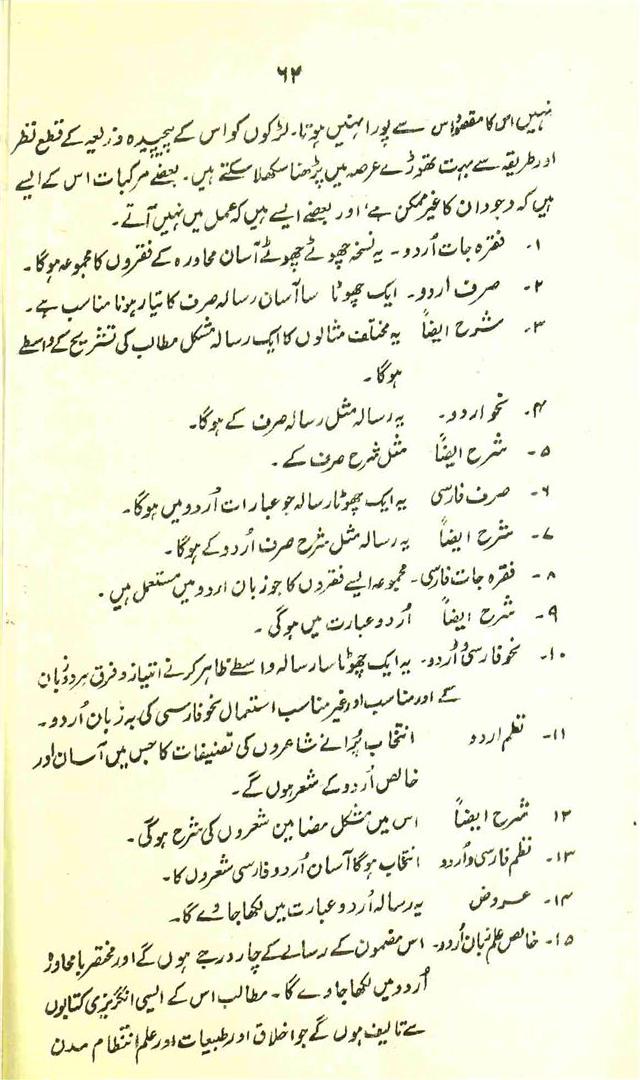 ۶۴
نہیں اس کا مقصود اس سے پورا نہیں ہوتا۔ لڑکوں کو اس کے پیچیدہ ذریعہ کے قطع نظر
اور طریقہ سے بہت تھوڑے عرصہ میں پڑھنا سکھلا سکتے ہیں۔ بعضے مرکبات اس کے ایسے
ہیں کہ وجود ان کا غیر ممکن ہے، اور بعضے ایسے ہیں کہ عمل میں نہیں آتے۔
۱۔ فقرہ جات اُردو۔ یہ نسخہ چھوٹے چھوٹے آسان محاورہ کے فقروں کا مجموعہ ہوگا۔
۲۔ صرف اردو۔ ایک چھوٹا سا آسان رسالہ صرف کا تیار ہونا مناسب ہے۔
۳۔ شرح ایضاً یہ مختلف مثالوں کا ایک رسالہ مشکل مطالب کی تشریح کے واسطے
ہوگا۔
۴۔ نحو اردو۔ یہ رسالہ مثل رسالہ صرف کے ہوگا۔
۵۔ شرح ایضاً مثل شرح صرف کے۔
۶۔ صرف فارسی یہ ایک چھوٹا رسالہ جو عبارات اُردو میں ہوگا۔
۷۔ شرح ایضاً یہ رسالہ مثل شرح صرف اُردو کے ہوگا۔
۸۔ فقرہ جات فارسی۔ مجموعہ ایسے فقروں کا جو زبان اردو میں مستعمل ہیں۔
۹۔ شرح ایضاً اُردو عبارت میں ہوگی۔
۱۰۔ نحو فارسی و اُردو۔ یہ ایک چھوٹا سا رسالہ واسطے ظاہر کرنے امتیاز و فرق ہر دو زبان
کے اور مناسب اور غیر مناسب استعمال نحو فارسی کی بہ زبان اُردو۔
۱۱۔ نظم اردو انتخاب پُرانے شاعروں کی تصنیفات کا جس میں آسان اور
خالص اُردو کے شعر ہوں گے۔
۱۲ شرح ایضاً اس میں مشکل مضامین شعروں کی شرح ہوگی۔
۱۳۔ نظم فارسی و اُردو انتخاب ہوگا آسان اُردو فارسی شعروں کا۔
۱۴۔ عروض یہ رسالہ اُردو عبارت میں لکھا جاوے گا۔
۱۵۔ خالص علم زبان اُردو۔ اس مضمون کے رسالے کے چار درجے ہوں گے اور مختصر با محاورہ
اُردو میں لکھا جاوے گا۔ مطالب اس کے ایسی انگریزی کتابوں
سے تالیف ہوں گے جو اخلاق اور طبیعات اور علم انتظام مدن